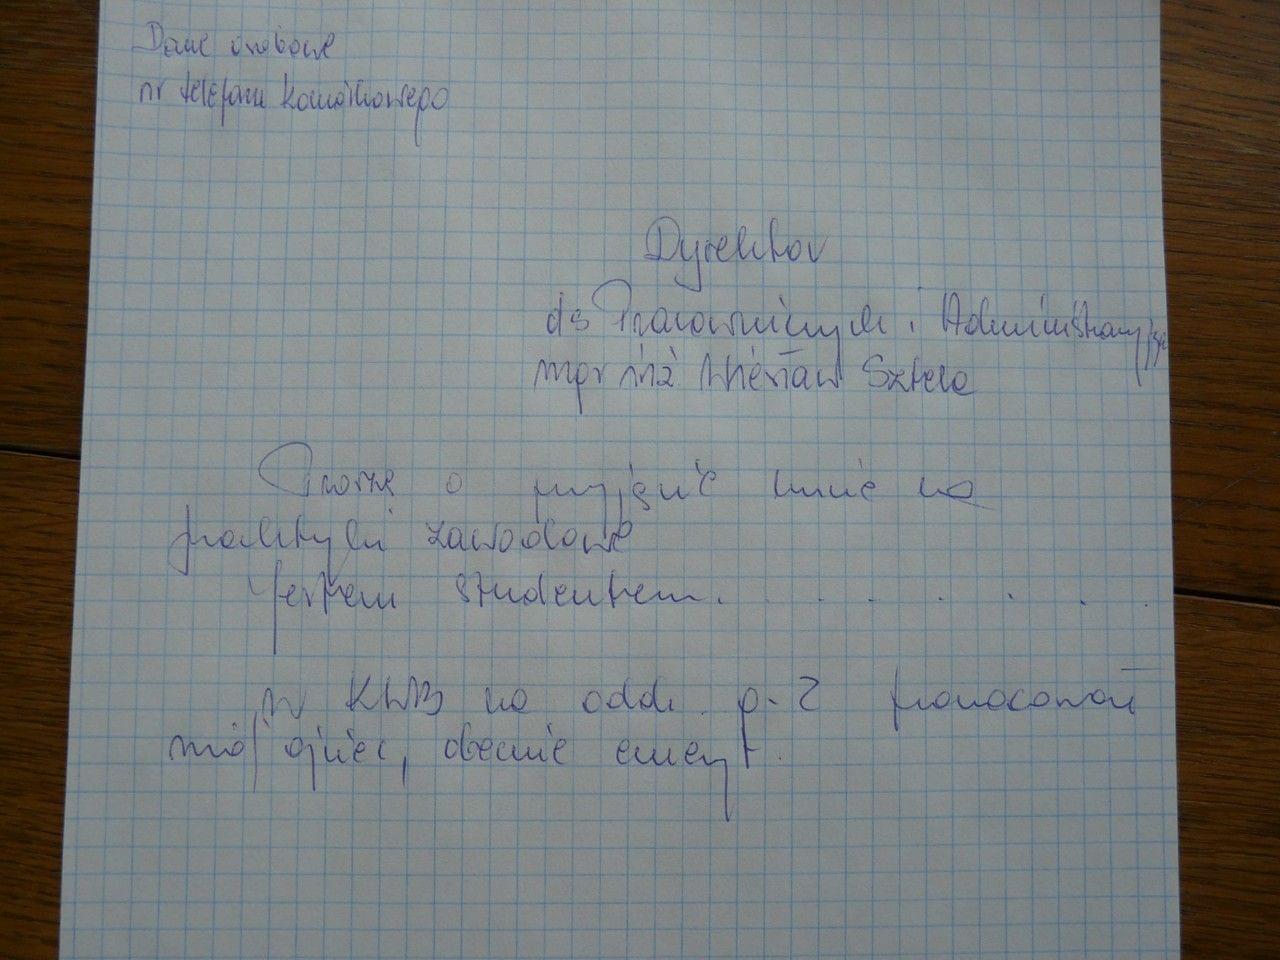 Dane osobowe
nr telefonu komórkowego
Dyrektor
ds Pracowniczych i Administracyjnych
mgr inż Wiesław Sztela
Proszę o przyjęcie mnie na
praktyki zawodowe
Jestem studentem. . . . . . .
W KWB na odd. p-2 pracował
mój ojciec, obecnie emeryt.